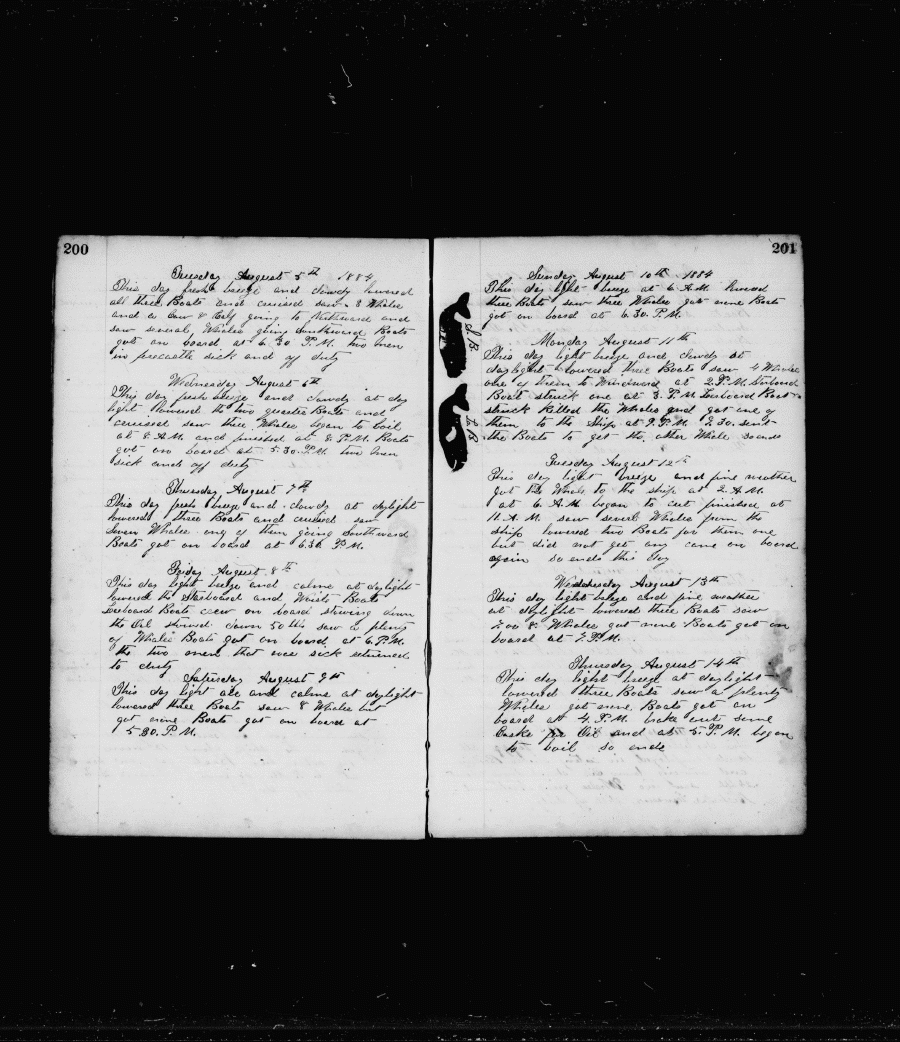 200
Tuesday August 5th 1884
This day fresh breeze and cloudy lowered
all three Boats and cruised saw 8 Whales
and a Cow & Calf going to Northward and
saw several Whales going Southward Boats
got on board at 6.30 P.M. two men
in forecastle sick and off duty
Wednesday August 6th
This day fresh breeze and cloudy at day
light lowered the two quarter Boats and
cruised saw three Whales began to boil
at 8 A.M. and finished at 8 P.M. Boats
got on board at 5.30 P.M. two men
sick and off duty
Thursday August 7th
This day fresh breeze and cloudy at daylight
lowered three Boats and cruised saw
seven Whales one of them going Southward
Boats got on board at 6.30 P.M.
Friday August 8th
This day light breeze and calms at daylight
lowered the Starboard and Waist Boats
Larboard Boats crew on board stowing down
the Oil stowed down 50 bbls saw a plenty
of Whales Boats got on board at 6 P.M.
the two men that were sick returned
to duty
Saturday August 9th
This day light air and calms at daylight
lowered three Boats saw 8 Whales but
got none Boats got on board at
5.30. P.M.
201
Sunday August 10th 1884
This day light breeze at 6 A.M. lowered
three Boats saw three Whales got none Boats
got on board at 6.30. P.M.
Monday August 11th
This day light breeze and cloudy at
daylight lowered three Boats saw 4 Whales
one of them to Windward at 2 P.M. Starboard
Boat struck one at 3. P.M. Larboard Boat
struck killed the Whales and got one of
them to the Ship at 9 P.M. 9.30. sent
the Boats to get the other Whale so ends
S.B.
L.B
Tuesday August 12th
This day light breeze and fine weather
got the Whale to the ship at 2. A.M.
at 6. A.M. began to cut finished at
11. A.M. saw several Whales from the
Ship lowered two Boats for them one
but did not get any came on board
again so ends this day
Wednesday August 13th
This day light breeze and fine weather
at daylight lowered three Boats saw
8 Whales got none Boats got on
board at 7. P.M.
Thursday August 14th
This day light breeze at daylight
lowered three Boats saw a plenty
Whales got none. Boats got on
board at 4. P.M. broke out some
Casks for Oil and at 5. P.M. began
to boil so ends